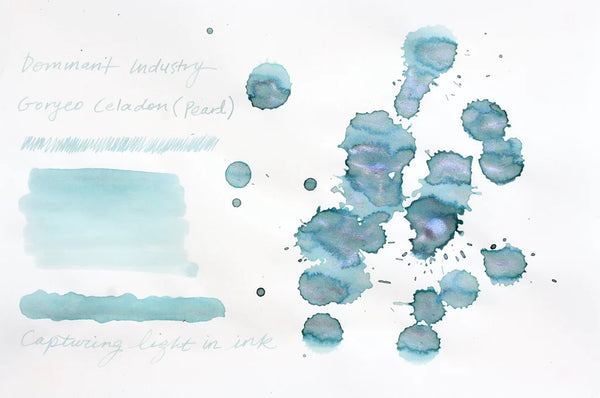 Dominant Industry
Goryeo Celadon (Pearl)
Capturing light in ink